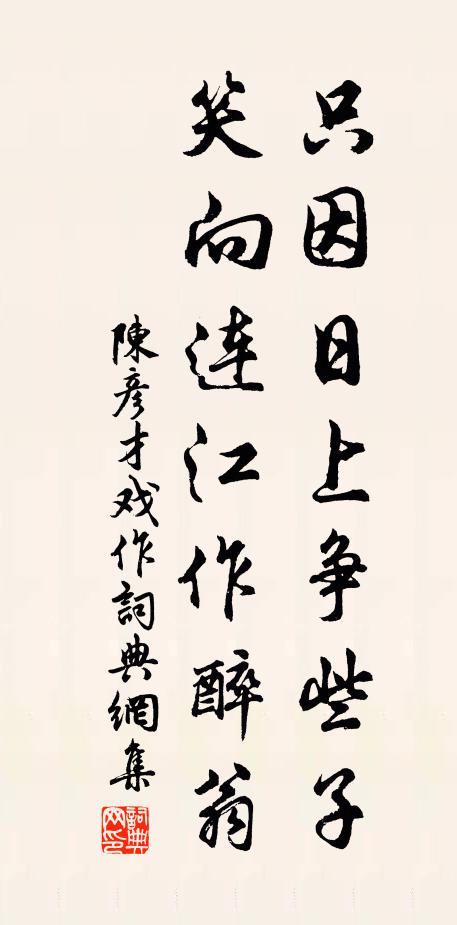 只因日上争些子
笑向連江作醉翁
陳彦才戏作詞典網集
詞典網印